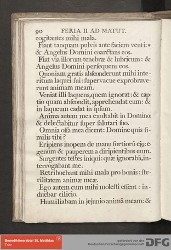 90 FERIA II AD MATUT.
cogitantes mihi mala.
Fiant tanquam pulvis ante faciem venti: &
Angelus Domini coarctans eos.
Fiat via illorum tenebræ & lubricum: &
Angelus Domini persequens eos.
Quoniam gratis absconderunt mihi inte-
ritum laquei sui: supervacue exprobrave-
runt animam meam.
Veniat illi laqueus, quem ignorat: & cap
tio quam abscondit, apprehendat eum: &
in laqueum cadat in ipsum.
Anima autem mea exultabit in Domino:
& delectabitur super salutari suo.
Omnia ossa mea dicent: Domine quis si-
milis tibi?
Eripiens inopem de manu fortiorū ejus:
egenum & pauperem a diripientibus eum.
Surgentes testes iniqui: quæ ignorabā, in-
terrogabant me.
Retribuebant mihi mala pro bonis: ste-
rilitatem animæ meæ.
Ego autem cum mihi molesti essent: in-
duebar cilicio.
Humiliabam in jejunio animā meam: &